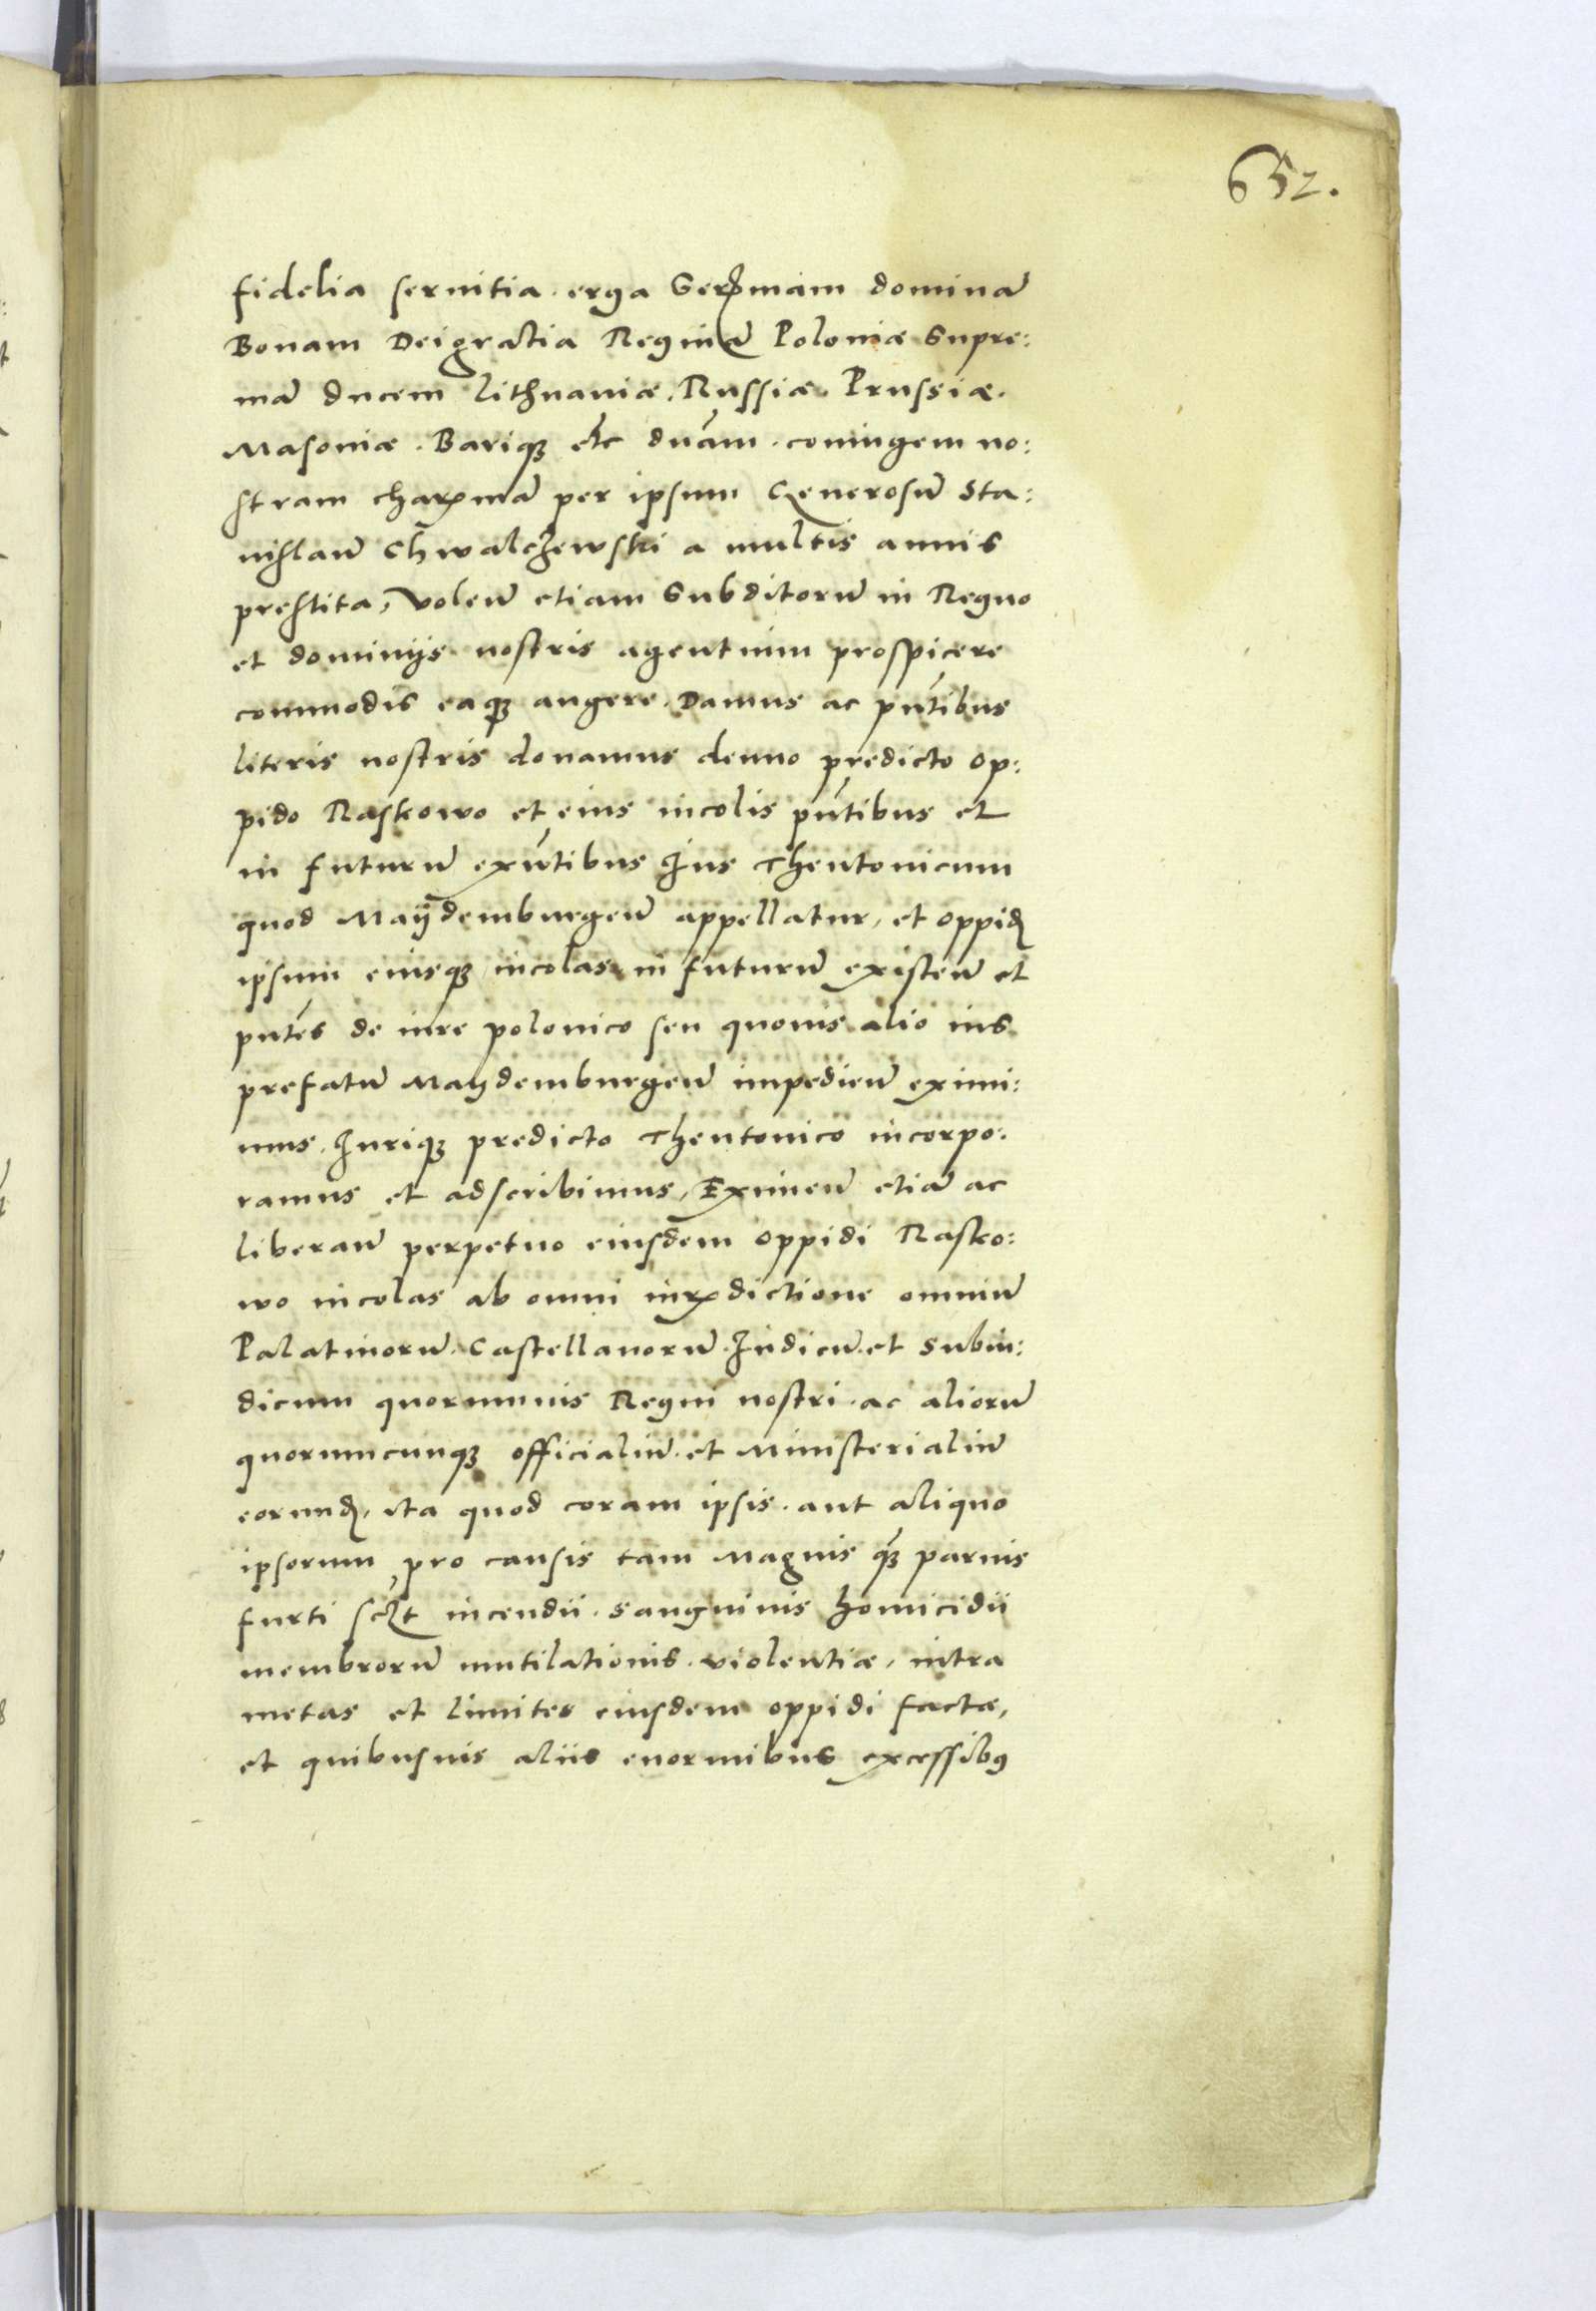 652.
fidelia seruitia erga Serꝫmam dominā
Bonam Deigratia Reginā Poloniæ Supre:
mā ducem Lithuaniæ. Russiæ. Prussiæ.
Masouiæ. Bariqꝫ etc dnām. coniugem no:
stram charꝫmā per ipsum Generosū Sta:
nislaū Chwalczewski a multis annis
prestita, Voleñ etiam Subditorū in Regno
et dominijs nostris agentium prospicere
commodis eaqꝫ augere. Damus ac pñtibus
literis nostris donamus denuo predicto op:
pido Raskowo et eius incolis pñtibus et
in futurū exñtibus Jus Theutonicum
quod Maÿdemburgeñ appellatur, et oppidū
ipsum eiusqꝫ incolas in futurū existeñ et
pñtes de iure polonico seu quouis alio ius
prefatū Maydemburgeñ impedieñ eximi:
mus. Juriqꝫ predicto Theutonico incorpo:
ramus et adscribimus, Eximeñ etiā ac
liberañ perpetuo eiusdem oppidi Rasko:
wo incolas ab omni iurꝫdictione omniū
Palatinorū. Castellanorū. Judicū. et Subiu:
dicum quorumuis Regni nostri. ac aliorū
quorumcunqꝫ officialiū. et Ministerialiū
eorundꝫ, ita quod coram ipsis. aut aliquo
ipsorum pro causis tam Magnis qꝫ̃ paruis
furti sclꝫt incendii. sanguinis homicidii
membrorū mutilationis. violentiæ, intra
metas et limites eiusdem oppidi factæ,
et quibusuis aliis enormibus excessibꝰ